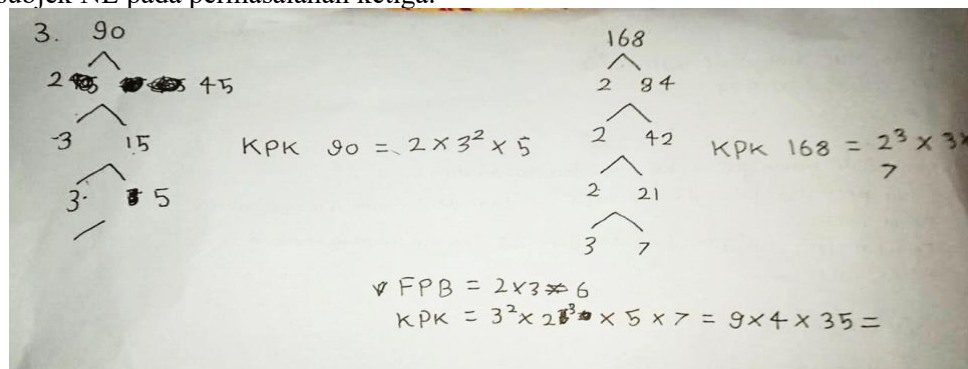 subjek NE pada permasalahan ketiga.
3. 90
2 45
3 15
3 5
KPK 90 = 2 × 3² × 5
168
2 84
2 42
2 21
3 7
KPK 168 = 2³ × 3 ×
7
FPB = 2×3 = 6
KPK = 3² × 2³ × 5 × 7 = 9 × 4 × 35 =